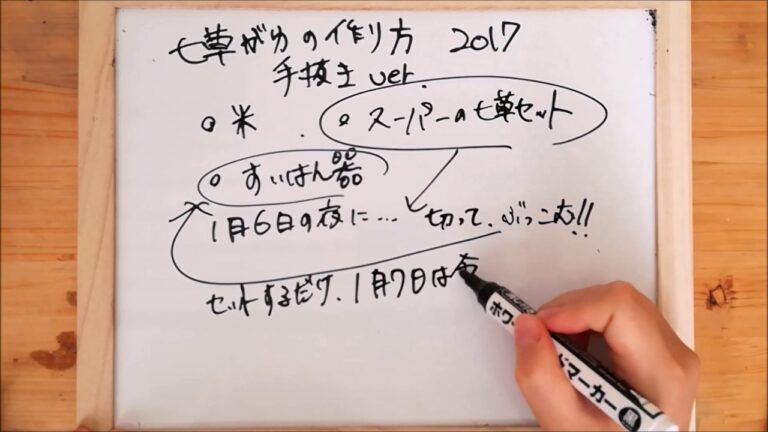 七草がゆの作り方 2017
手抜きver.
○ 米 ○ スーパーの七草セット
○ すいはん器
1月6日の夜に… 切って、ぶっこむ!!
セットするだけ、1月7日は
ホワ
ドマーカー
黒